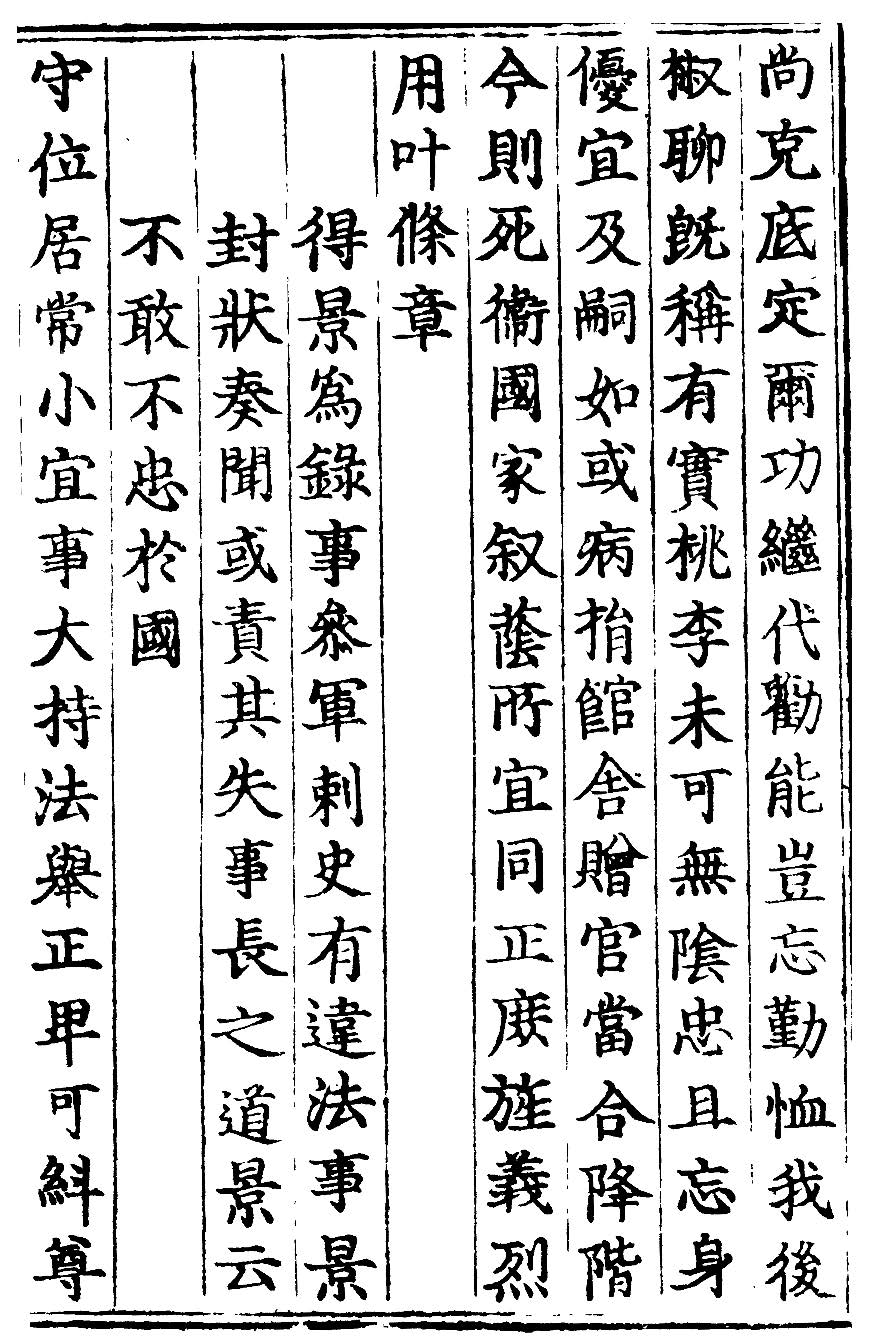 尚克底定爾功繼代勸能豈忘勤恤我後
椒聊旣稱有實桃李未可無陰忠且忘身
優宜及嗣如或病捐館舍贈官當合降階
今則死衞國家叙蔭所宜同正庶旌義烈
用叶條章
得景爲錄事叅軍刺史有違法事景
封狀奏聞或責其失事長之道景云
不敢不忠於國
守位居常小宜事大持法舉正卑可糾尊